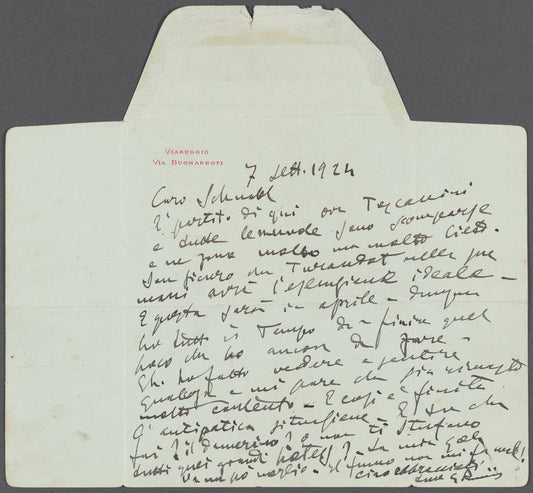 VIAREGGIO
VIA BUONARROTI
7 Sett. 1924
Caro Schnabl
È partito di qui ora Toscanini
e tutte le nuvole sono scomparse
e ne sono molto ma molto lieto.
Son sicuro che Turandot nelle sue
mani avrà l'esecuzione ideale –
E questa sarà in aprile – dunque
ho tutto il tempo di finire quel
poco che ho ancora da fare –
Gli ho fatto vedere e sentire
qualcosa e mi pare che sia rimasto
molto contento – E così è finita
l'antipatica situazione – E tu che
fai? il damerino? o non ti stufano
tutti quei grandi hotels? – La mia gola
va un po' meglio – il fumo non mi fa male!
ciao